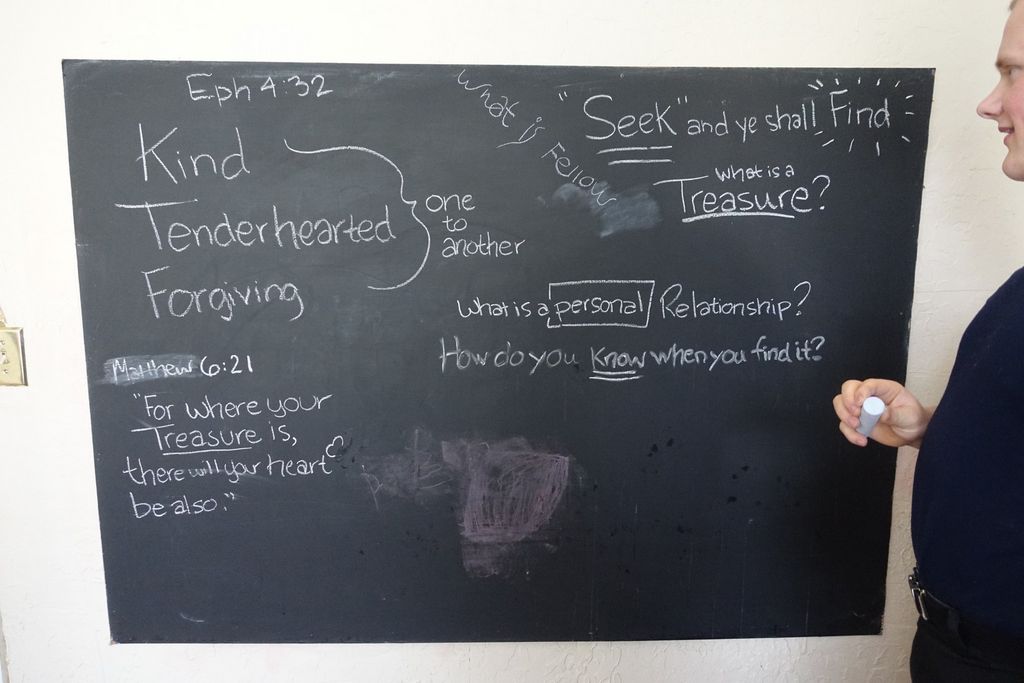 Eph 4:32
Kind
Tenderhearted
Forgiving
one
to
another
Matthew 6:21
"For where your
Treasure is,
there will your heart
be also."
What is Fellow
"Seek" and ye shall Find
What is a
Treasure?
What is a personal Relationship?
How do you know when you find it?